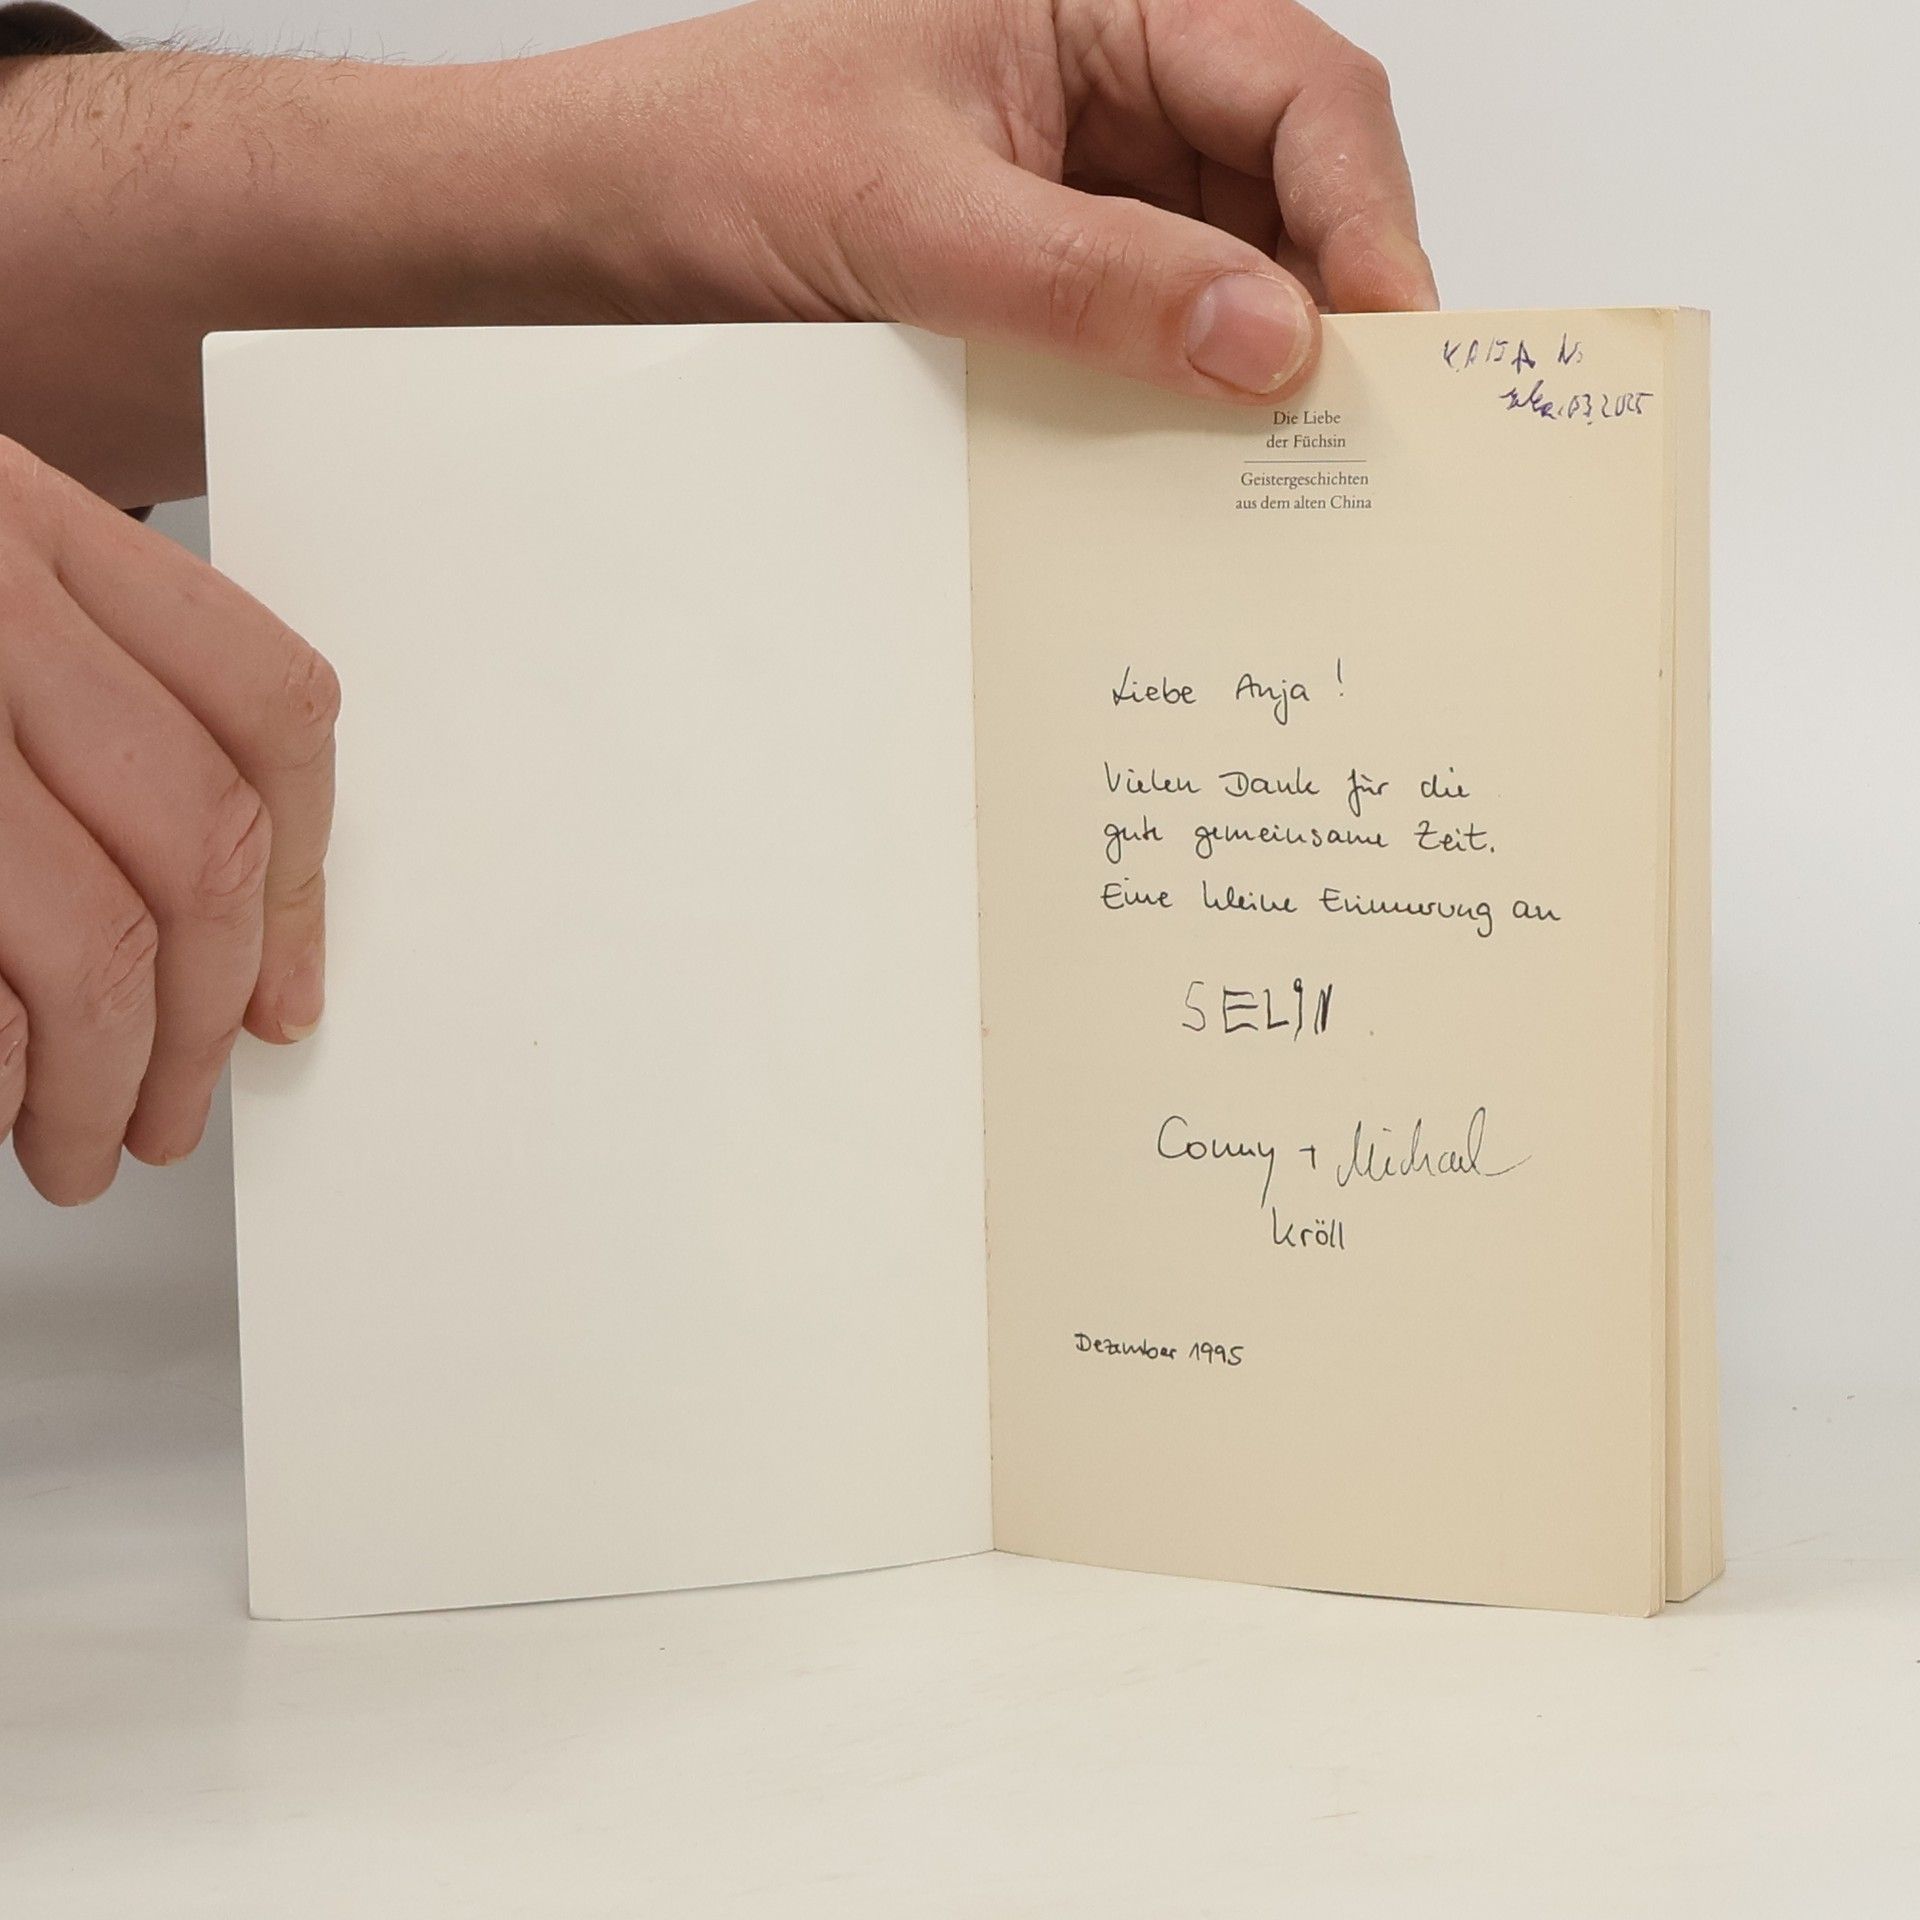 KATJA N.
03.2025
Die Liebe
der Füchsin
Geistergeschichten
aus dem alten China
Liebe Anja!
Vielen Dank für die
gute gemeinsame Zeit.
Eine kleine Erinnerung an
SELIN
Conny + Michael
Kröll
Dezember 1995